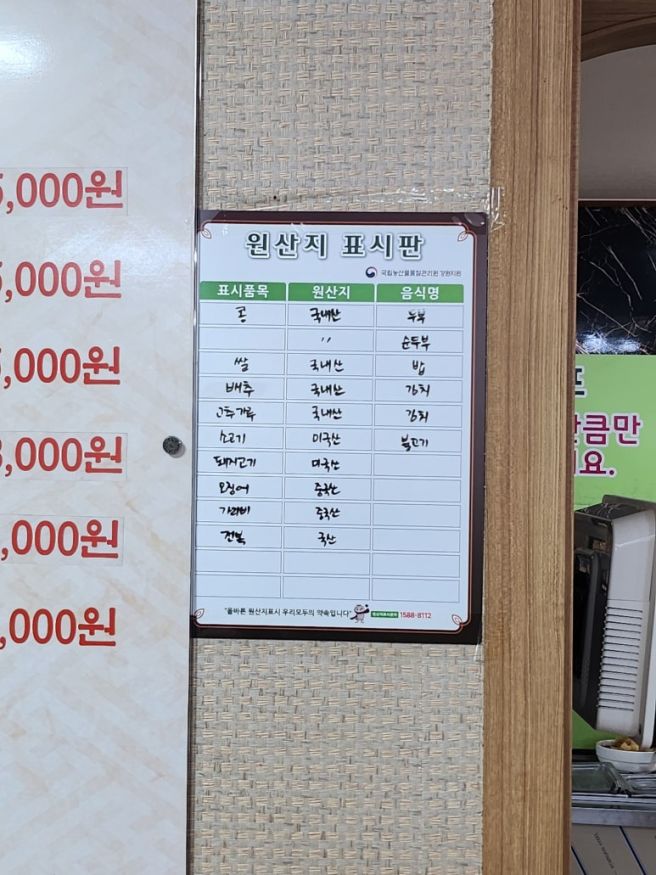 5,000원
5,000원
5,000원
3,000원
,000원
,000원
원산지 표시판
국립농산물품질관리원 강원지원
표시품목 원산지 음식명
콩 국내산 두부
〃 순두부
쌀 국내산 밥
배추 국내산 김치
고추가루 국내산 김치
소고기 미국산 불고기
돼지고기 미국산
오징어 중국산
가리비 중국산
전복 국산
"올바른 원산지표시 우리모두의 약속입니다" 1588-8112
만큼만
요.